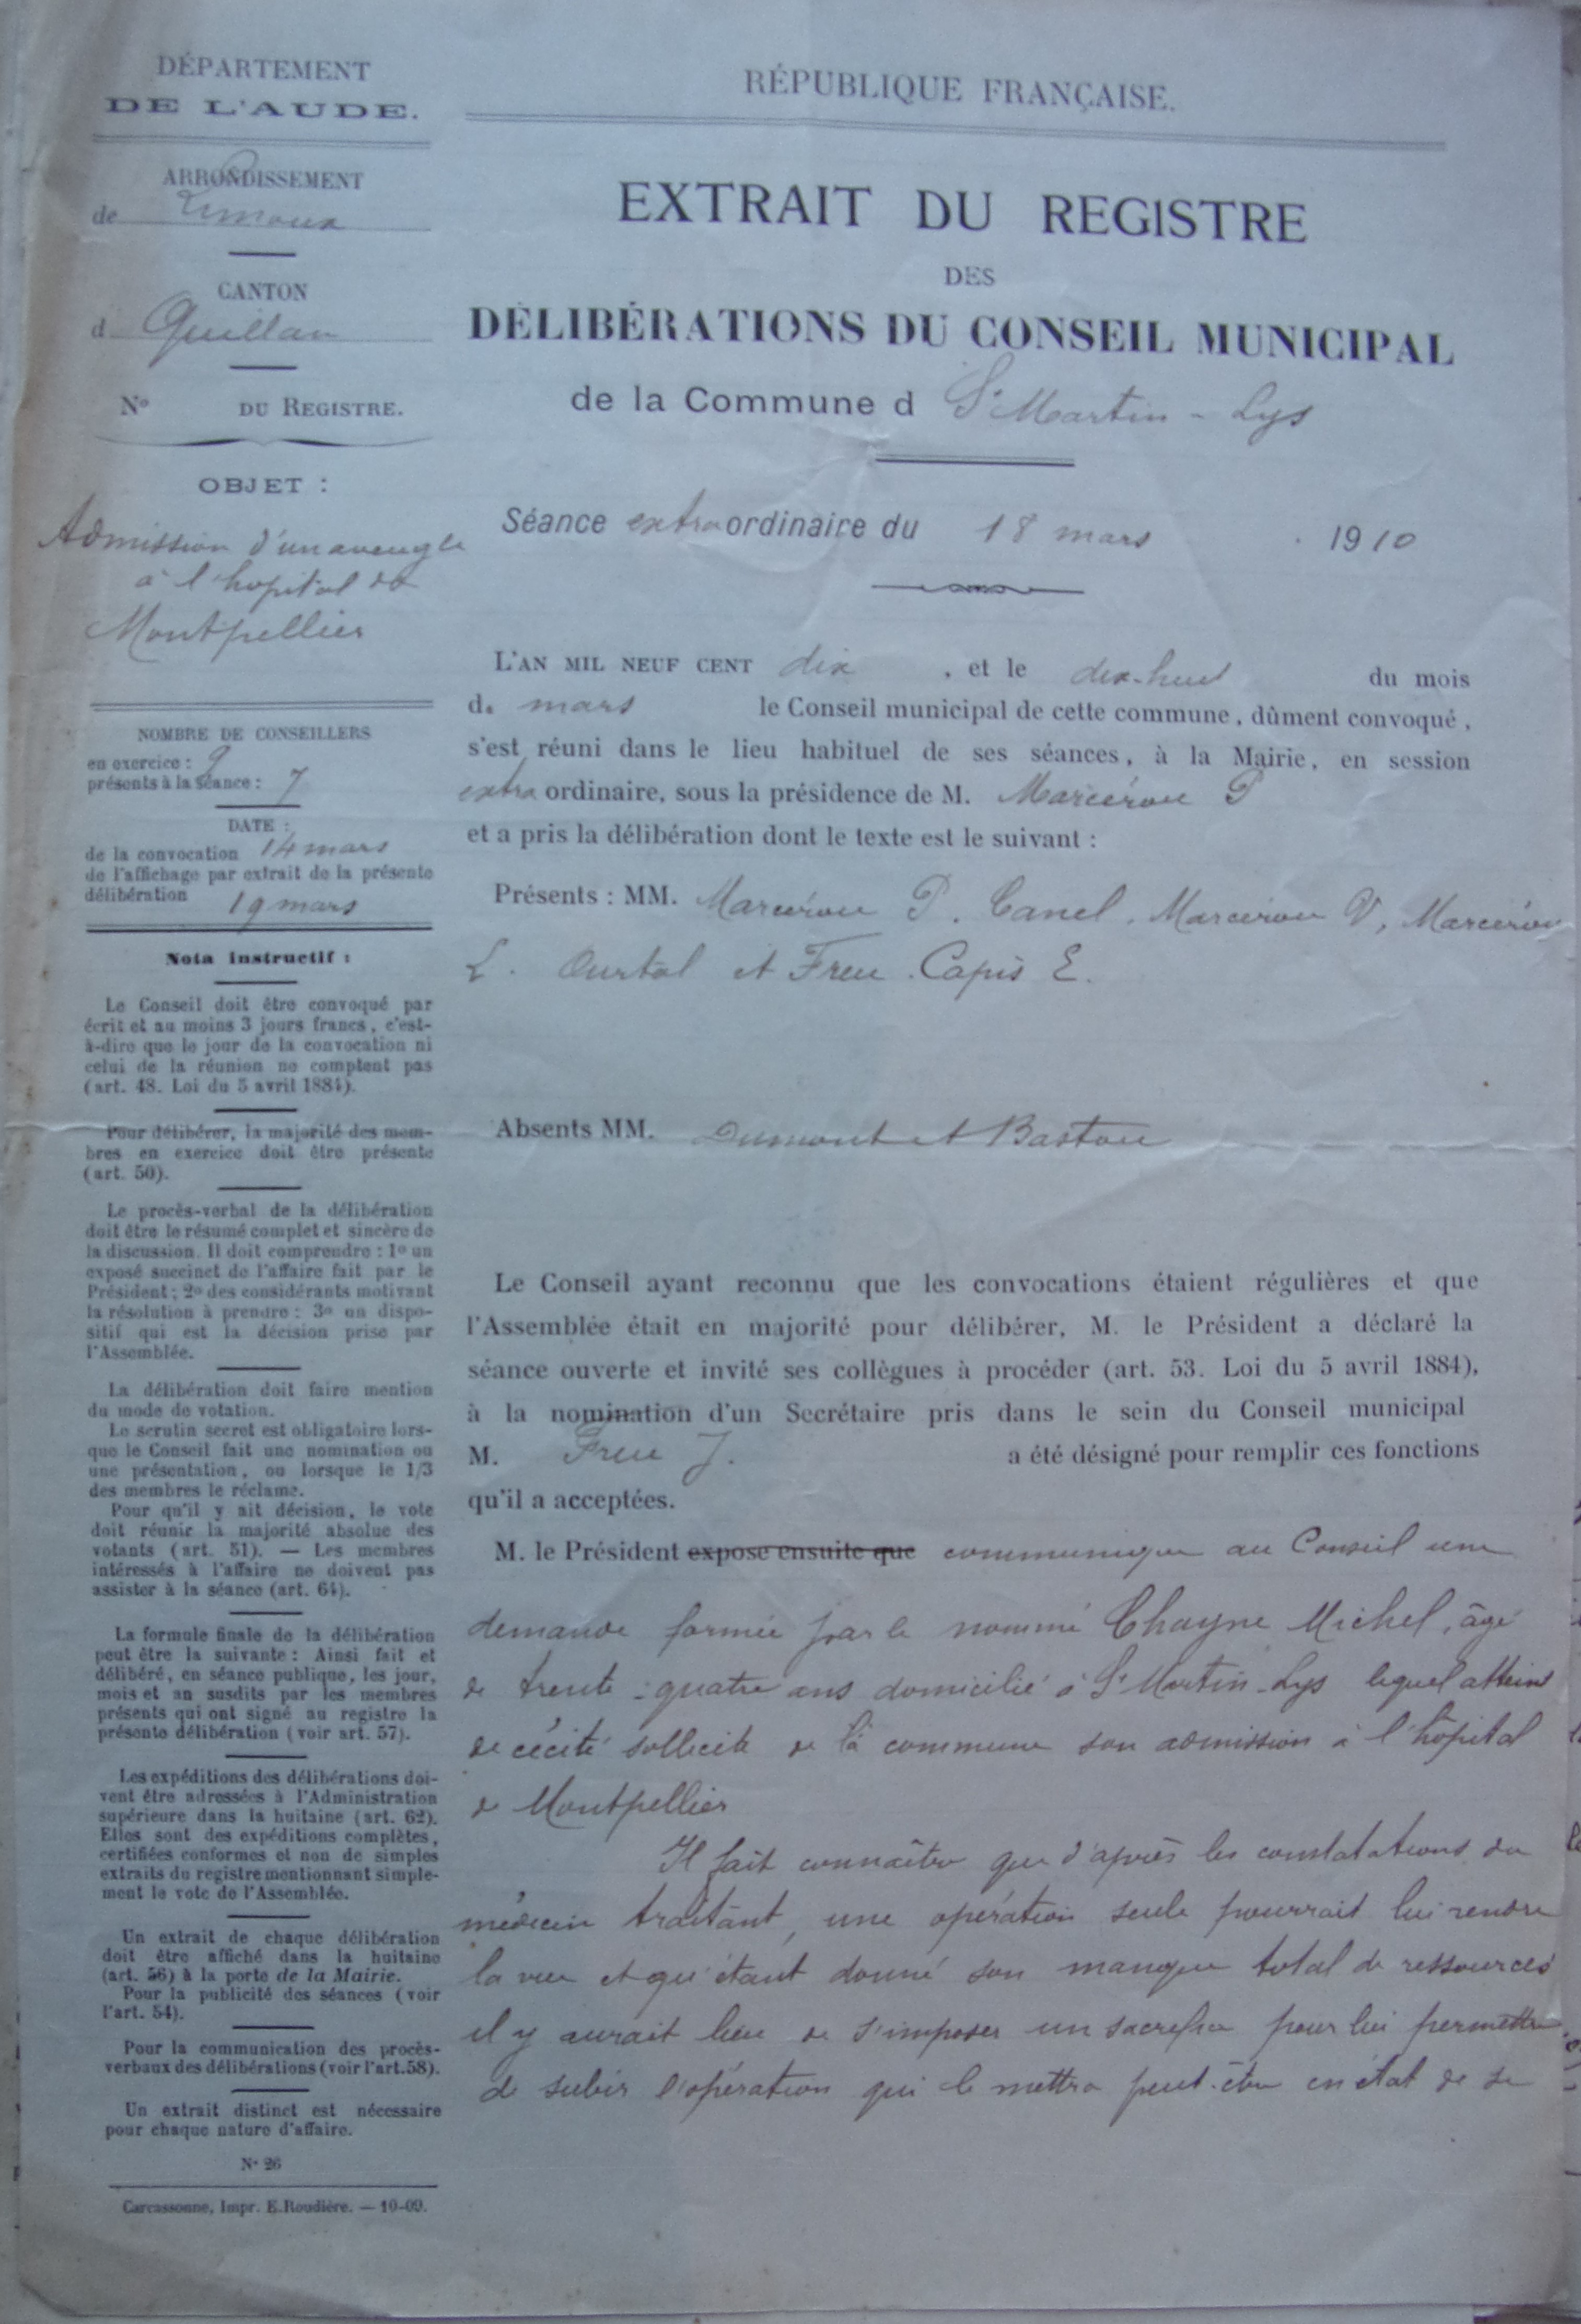 DÉPARTEMENT
DE L'AUDE.
ARRONDISSEMENT
de Limoux
CANTON
d Quillan
N° DU REGISTRE.
OBJET :
Admission d'un aveugle
à l'hopital de
Montpellier
NOMBRE DE CONSEILLERS
en exercice : 9
présents à la séance : 7
DATE :
de la convocation 14 mars
de l'affichage par extrait de la présente
délibération 19 mars
Nota instructif :
Le Conseil doit être convoqué par
écrit et au moins 3 jours francs, c'est-
à-dire que le jour de la convocation ni
celui de la réunion ne comptent pas
(art. 48. Loi du 5 avril 1884).
Pour délibérer, la majorité des mem-
bres en exercice doit être présente
(art. 50).
Le procès-verbal de la délibération
doit être le résumé complet et sincère de
la discussion. Il doit comprendre : 1° un
exposé succinct de l'affaire fait par le
Président ; 2° des considérants motivant
la résolution à prendre : 3° un dispo-
sitif qui est la décision prise par
l'Assemblée.
La délibération doit faire mention
du mode de votation.
Le scrutin secret est obligatoire lors-
que le Conseil fait une nomination ou
une présentation, ou lorsque le 1/3
des membres le réclame.
Pour qu'il y ait décision, le vote
doit réunir la majorité absolue des
votants (art. 51). — Les membres
intéressés à l'affaire ne doivent pas
assister à la séance (art. 64).
La formule finale de la délibération
peut être la suivante : Ainsi fait et
délibéré, en séance publique, les jour,
mois et an susdits par les membres
présents qui ont signé au registre la
présente délibération (voir art. 57).
Les expéditions des délibérations doi-
vent être adressées à l'Administration
supérieure dans la huitaine (art. 62).
Elles sont des expéditions complètes,
certifiées conformes et non de simples
extraits du registre mentionnant simple-
ment le vote de l'Assemblée.
Un extrait de chaque délibération
doit être affiché dans la huitaine
(art. 56) à la porte de la Mairie.
Pour la publicité des séances (voir
l'art. 54).
Pour la communication des procès-
verbaux des délibérations (voir l'art. 58).
Un extrait distinct est nécessaire
pour chaque nature d'affaire.
N° 26
Carcassonne, Impr. E. Roudière. — 10-09.
RÉPUBLIQUE FRANÇAISE.
EXTRAIT DU REGISTRE
DES
DÉLIBÉRATIONS DU CONSEIL MUNICIPAL
de la Commune d St Martin - Lys
Séance extraordinaire du 18 mars 1910
L'AN MIL NEUF CENT dix , et le dix-huit du mois
de mars le Conseil municipal de cette commune, dûment convoqué,
s'est réuni dans le lieu habituel de ses séances, à la Mairie, en session
extra ordinaire, sous la présidence de M. Marcérou P
et a pris la délibération dont le texte est le suivant :
Présents : MM. Marcérou P. Canel, Marcerou V, Marcérou
L. Ourtal et Freu. Capis E.
Absents MM. Dumont et Bastou
Le Conseil ayant reconnu que les convocations étaient régulières et que
l'Assemblée était en majorité pour délibérer, M. le Président a déclaré la
séance ouverte et invité ses collègues à procéder (art. 53. Loi du 5 avril 1884),
à la nomination d'un Secrétaire pris dans le sein du Conseil municipal
M. Freu J. a été désigné pour remplir ces fonctions
qu'il a acceptées.
M. le Président expose ensuite que communique au Conseil une
demande formée par le nommé Chayne Michel, âgé
de trente-quatre ans domicilié à St Martin-Lys lequel atteint
de cécité sollicite de la commune son admission à l'hôpital
de Montpellier
Il fait connaître que d'après les constatations du
médecin traitant, une opération seule pourrait lui rendre
la vue et qu'étant donné son manque total de ressources
il y aurait lieu de s'imposer un sacrifice pour lui permettre
de subir l'opération qui le mettra peut-être en état de se